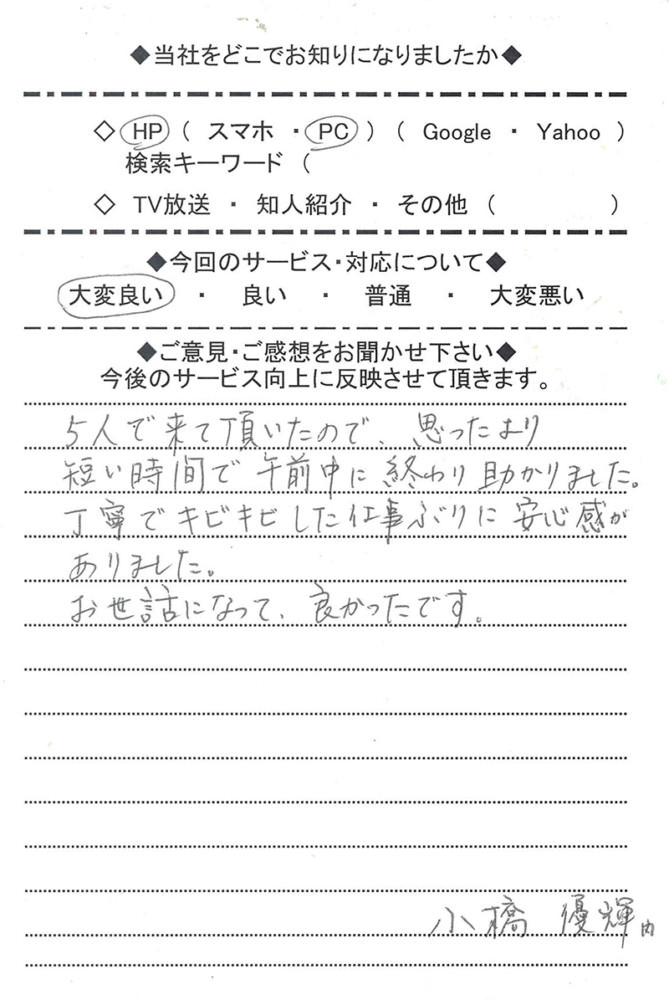 ◆当社をどこでお知りになりましたか◆
◇ HP ( スマホ ・ PC ) ( Google ・ Yahoo )
検索キーワード (
◇ TV放送 ・ 知人紹介 ・ その他 ( )
◆今回のサービス・対応について◆
大変良い ・ 良い ・ 普通 ・ 大変悪い
◆ご意見・ご感想をお聞かせ下さい◆
今後のサービス向上に反映させて頂きます。
5人で来て頂いたので、思ったより
短い時間で午前中に終わり助かりました。
丁寧でキビキビした仕事ぶりに安心感が
ありました。
お世話になって、良かったです。
小橋 優輝内